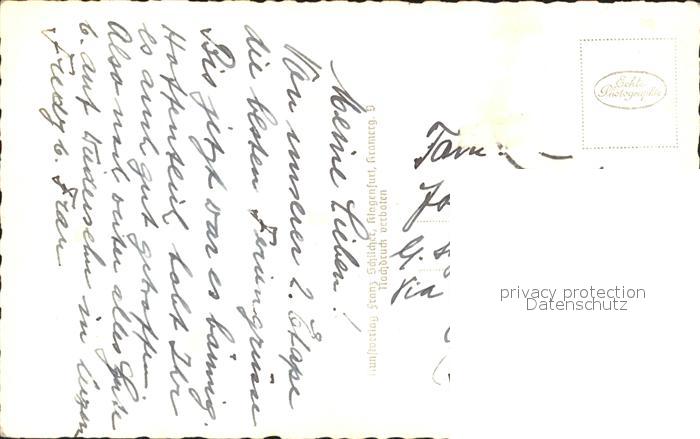 Meine Lieben!
Von unserer 2. Etape
die besten Feriengrüsse
Bis jetzt war es bäumig.
Hoffentlich habt Ihr
es auch gut getroffen.
Also noch weiter alles Gute
u. auf Wiedersehn in
Fredy u. Frau
Kunstverlag Franz Schilcher, Klagenfurt, Kramerg. 9
Nachdruck verboten
Echte
Photographie
Fam.
privacy protection
Datenschutz